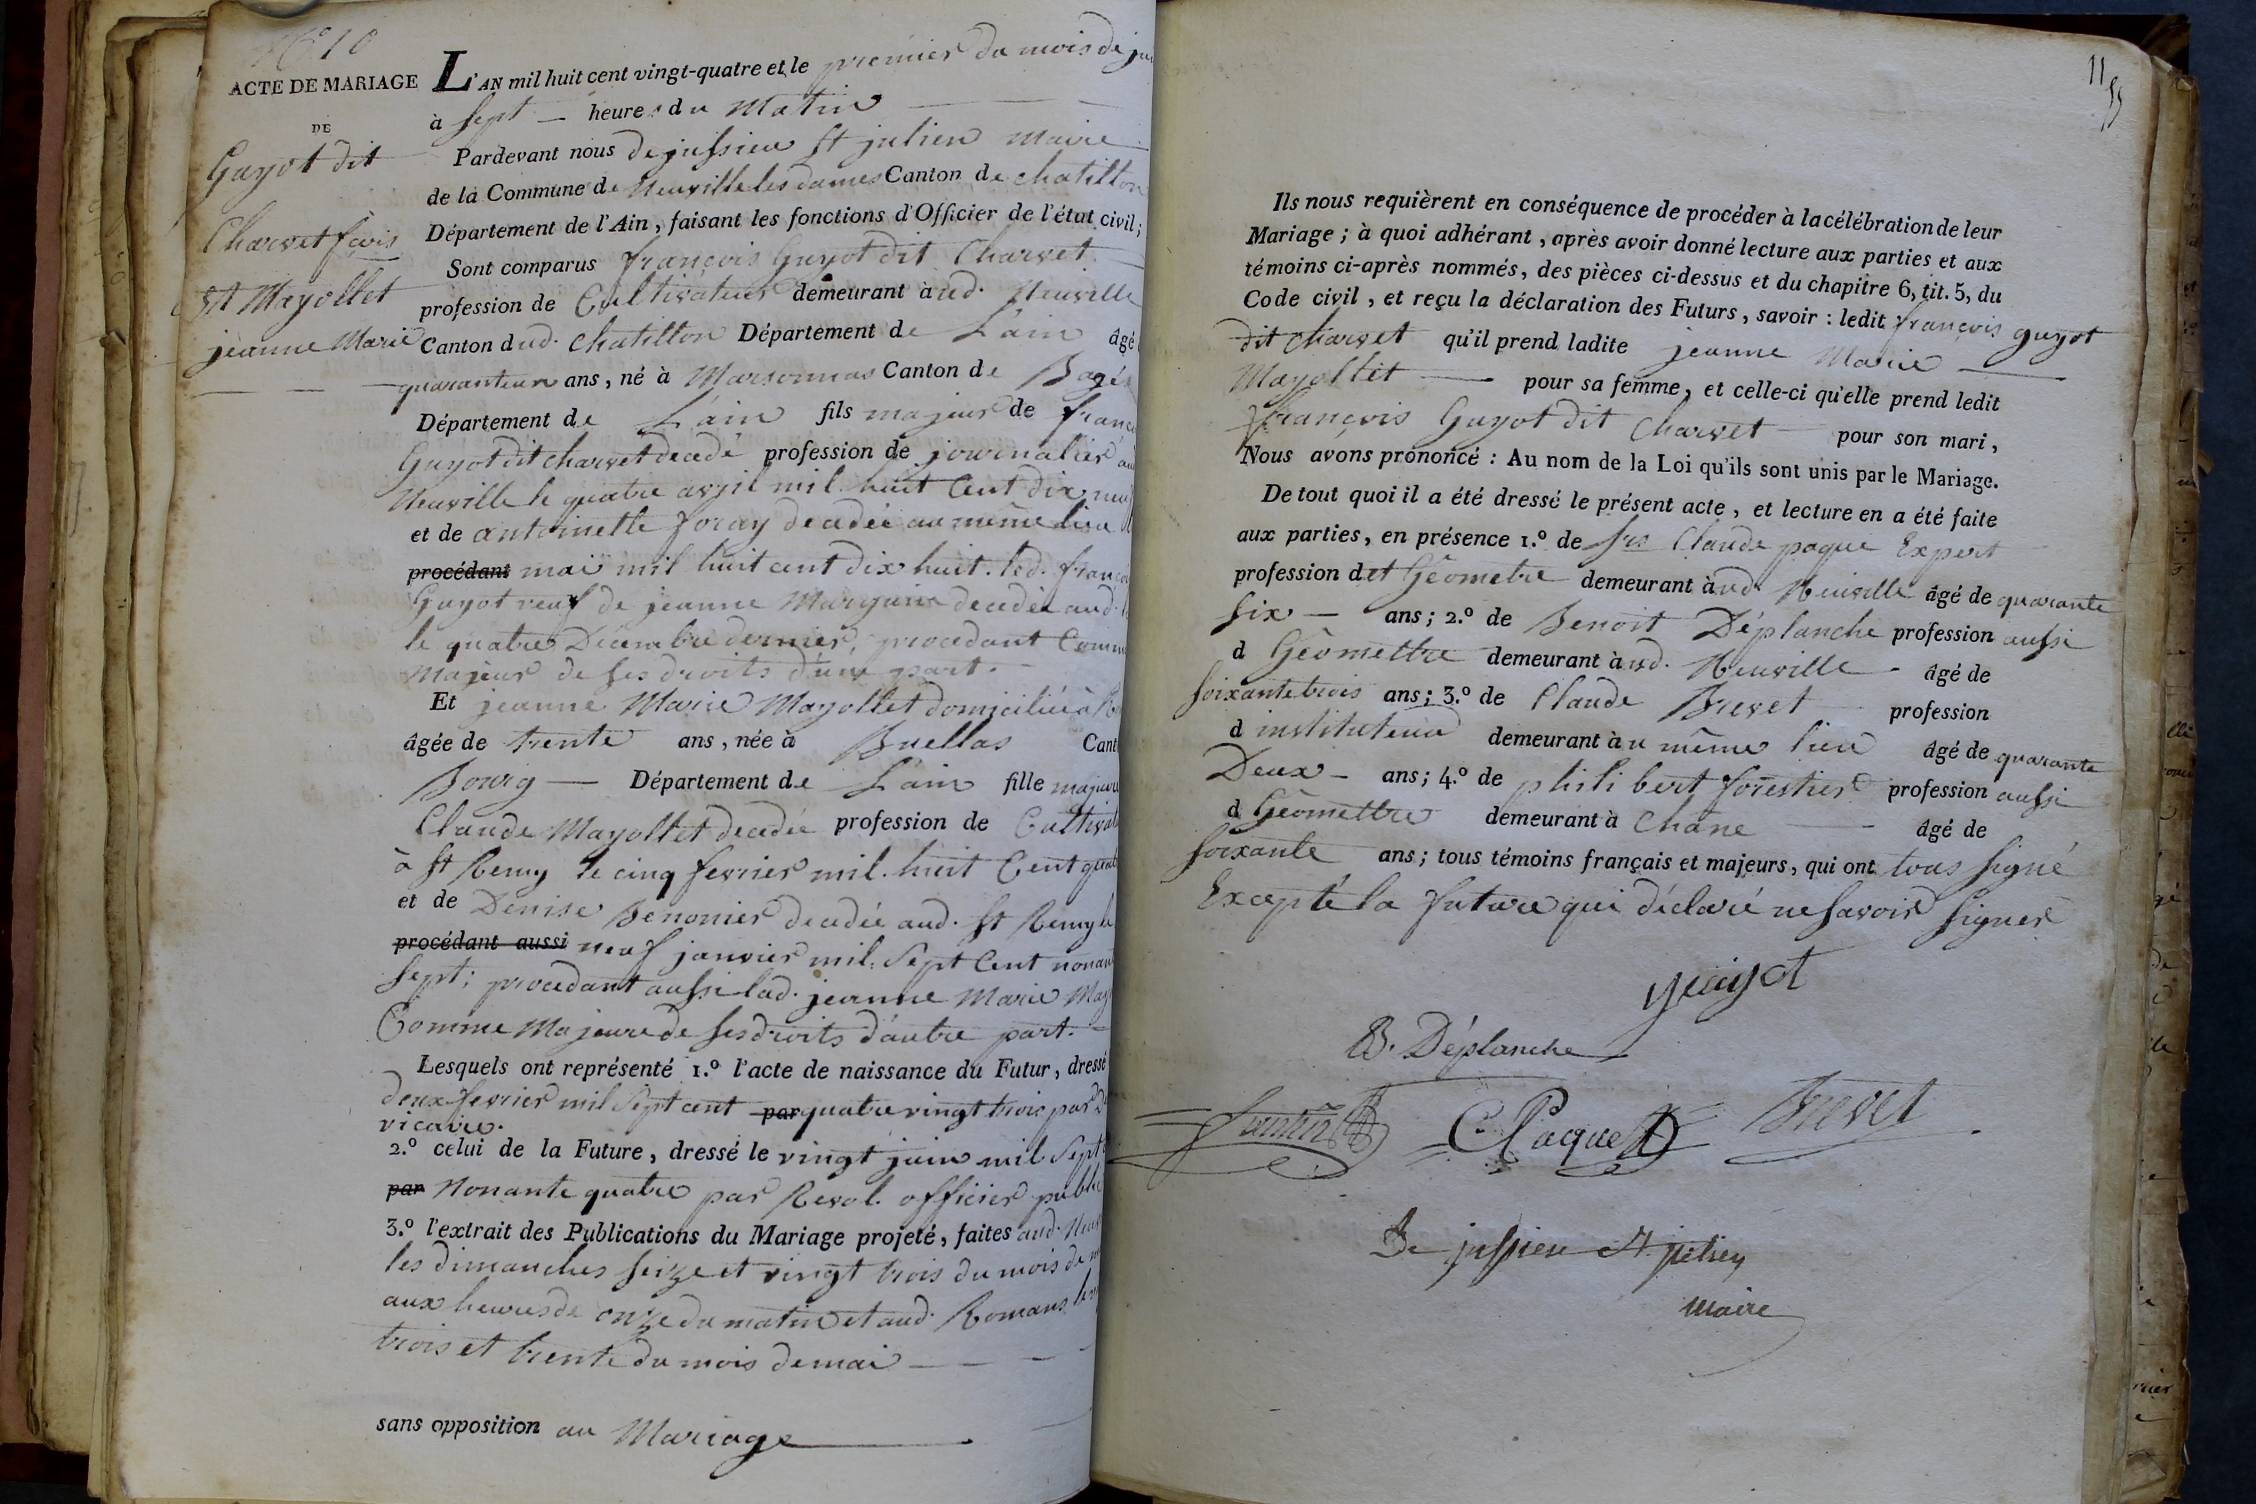 N.º 10
ACTE DE MARIAGE
DE
Guyot dit
Charvet fçois
et Mayollet
jeanne Marie
L'AN mil huit cent vingt-quatre et le premier du mois de
à sept heures du Matin
Pardevant nous Dejussieu St julien Maire
de la Commune de Neuville les dames Canton de Chatillon
Département de l'Ain, faisant les fonctions d'Officier de l'état civil;
Sont comparus françois Guyot dit Charvet
profession de Cultivateur demeurant àud. Neuville
Canton dud. Chatillon Département de L'ain âgé
quaranteun ans, né à Marsonnas Canton de Bagé
Département de L'ain fils majeur de
Guyot dit charvet decedé profession de journalier
Neuville le quatre avril mil huit Cent dix
et de antoinette foray decedée au même lieu
procédant mai mil huit cent dix huit. led.
Guyot veuf de jeanne decedée aud.
le quatre Décembre dernier, procedant
Majeur de ses droits d'une part.
Et jeanne Marie Mayollet domiciliée à
âgée de trente ans, née à Buellas
Bourg Département de L'ain fille
Claude Mayollet decedée profession de
à St Remy le cinq fevrier mil huit Cent
et de Denise Benonier decedée aud. St Remy le
procédant aussi neuf janvier mil Sept Cent
Sept; procedant aussi lad. jeanne Marie
Comme Majeure de ses droits d'autre part.
Lesquels ont représenté 1.º l'acte de naissance du Futur, dressé
deux fevrier mil Sept cent par quatre vingt trois par
vicaire.
2.º celui de la Future, dressé le vingt juin mil Sept
par Nonante quatre par Revol. officier
3.º l'extrait des Publications du Mariage projeté, faites aud.
les dimanches seize et vingt trois du mois de
aux heures de onze du matin et aud. Romans
trois et trente du mois demai
sans opposition au Mariage
11
Ils nous requièrent en conséquence de procéder à la célébration de leur
Mariage; à quoi adhérant, après avoir donné lecture aux parties et aux
témoins ci-après nommés, des pièces ci-dessus et du chapitre 6, tit. 5, du
Code civil, et reçu la déclaration des Futurs, savoir : ledit françois guyot
dit charvet qu'il prend ladite jeanne Marie
Mayollet pour sa femme, et celle-ci qu'elle prend ledit
françois Guyot dit Charvet pour son mari,
Nous avons prononcé : Au nom de la Loi qu'ils sont unis par le Mariage.
De tout quoi il a été dressé le présent acte, et lecture en a été faite
aux parties, en présence 1.º de Srs Claude paque Expert
profession det Géometre demeurant àud. Neuville âgé de quarante
six ans; 2.º de Benoit Déplanche profession aussi
d Géomettre demeurant àud. Neuville âgé de
soixante trois ans; 3.º de Claude Brevet profession
d instituteur demeurant àu même lieu âgé de quarante
Deux ans; 4.º de philibert forestier profession aussi
d Géomettre demeurant à Chane âgé de
soixante ans; tous témoins français et majeurs, qui ont tous signé
Excepté la future qui déclaré ne savoir signer
guyot
B. Déplanche
C. Paque
Brevet
De jussieu St julien
Maire